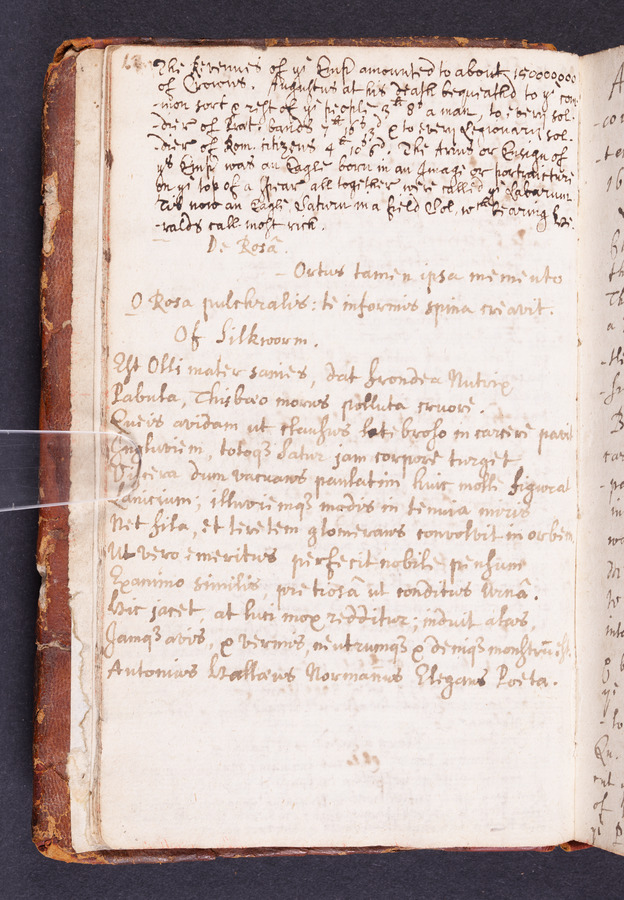 The Revenues of ye Emp amounted to about 15000000
of Crowns. Augustus at his death bequeathd to ye com
-mon sort & rest of ye people 3th 8s a man, to every sol-
-dier of Prat. bands 7th 16s 3d & to every Legionary sol-
-dier of Rom. citizens 4th 10s 6d. The Arms or Ensign of
ye Emp was an Eagle born in an Image or portraicture
on ye top of a spear all together were called ye Labarum
Tis now an Eagle Saturn in a field Sol, wch bearing He-
-ralds call most rich.
De Rosâ.
- Ortus tamen ipsa memento
O Rosa pulchralis: te informis spina creavit.
Of Silkworm.
Est Olli mater sanies, dat frondea Nutrix
Pabula, Thisbæo morus polluta cruore.
Queis avidam ut clausus latebroso in carcere pavit
Ingluviem, totoqz satur jam corpore turget
Viscera dum vacuans paulatim huic molle figurat
Lanicium; illuviemqz modis in tenuia miris
Net fila, et teretem glomerans convolvit in orbem
Ut vero emeritus perfecit nobile pensum
Exanimo similis, pretiosâ ut conditus Urnâ.
Hic jacet, at luci mox redditur; induit alas,
Jamqz avis, & vermis, neutrumqz & deniqz monstrū est.
Antonius Hallæus Normanus Elegans Poeta.